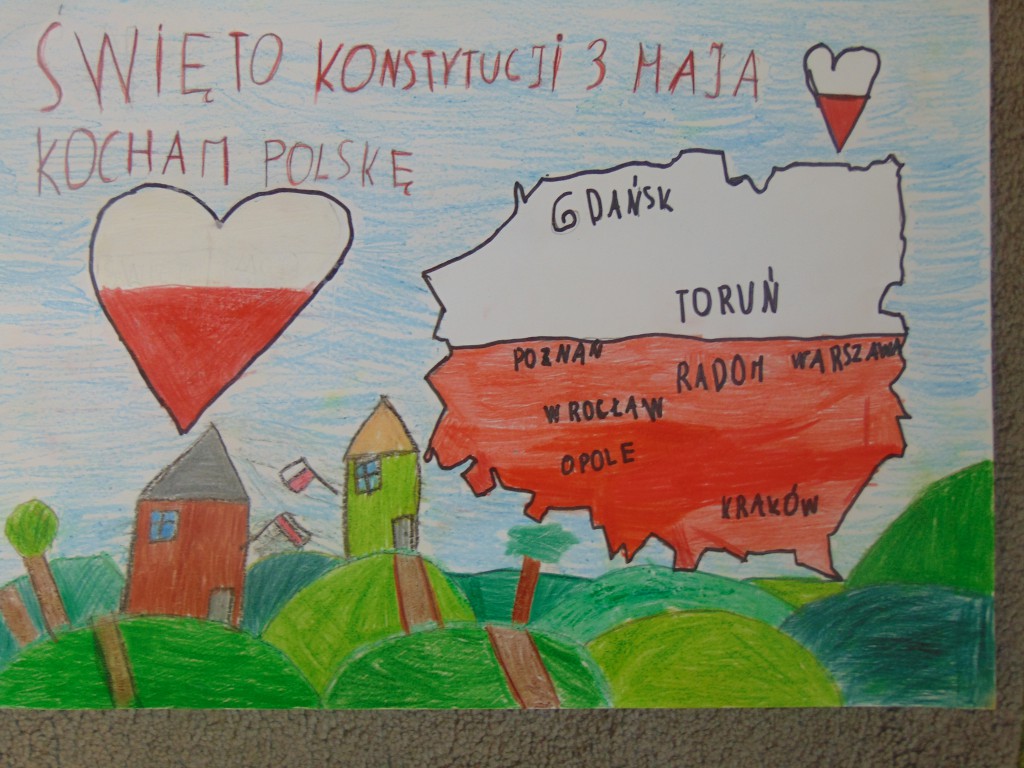 ŚWIĘTO KONSTYTUCJI 3 MAJA
KOCHAM POLSKĘ
GDAŃSK
TORUŃ
POZNAŃ
RADOM
WARSZAWA
WROCŁAW
OPOLE
KRAKÓW